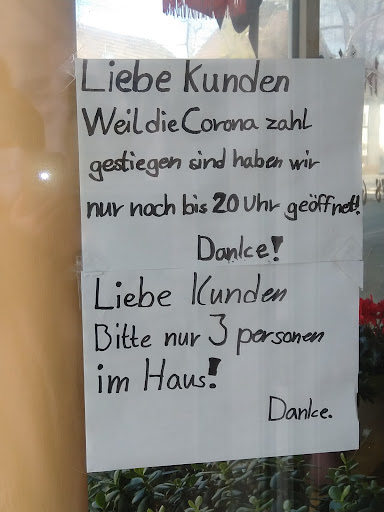 Liebe Kunden
Weil die Corona zahl
gestiegen sind haben wir
nur noch bis 20 Uhr geöffnet!
Danke!
Liebe Kunden
Bitte nur 3 personen
im Haus!
Danke.